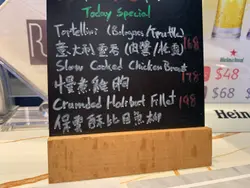 Today Special
Tortellini (Bolognes/Truffle)
意大利雲吞 (肉醬/松露) 168
Slow Cooked Chicken Breast
慢煮雞胸 178
Crumbed Halibut Fillet 198
比目魚柳
R
Heineken
$48
$68
Hein